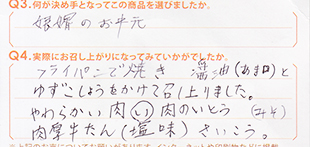 Q3.何が決め手となってこの商品を選びましたか。
娘婿のお中元
Q4.実際にお召し上がりになってみていかがでしたか。
フライパンで焼き 醤油(あま口)と
ゆずこしょうをかけて召し上りました。
やわらかい肉 い 肉のいとう
肉厚牛たん(塩味)さいこう。